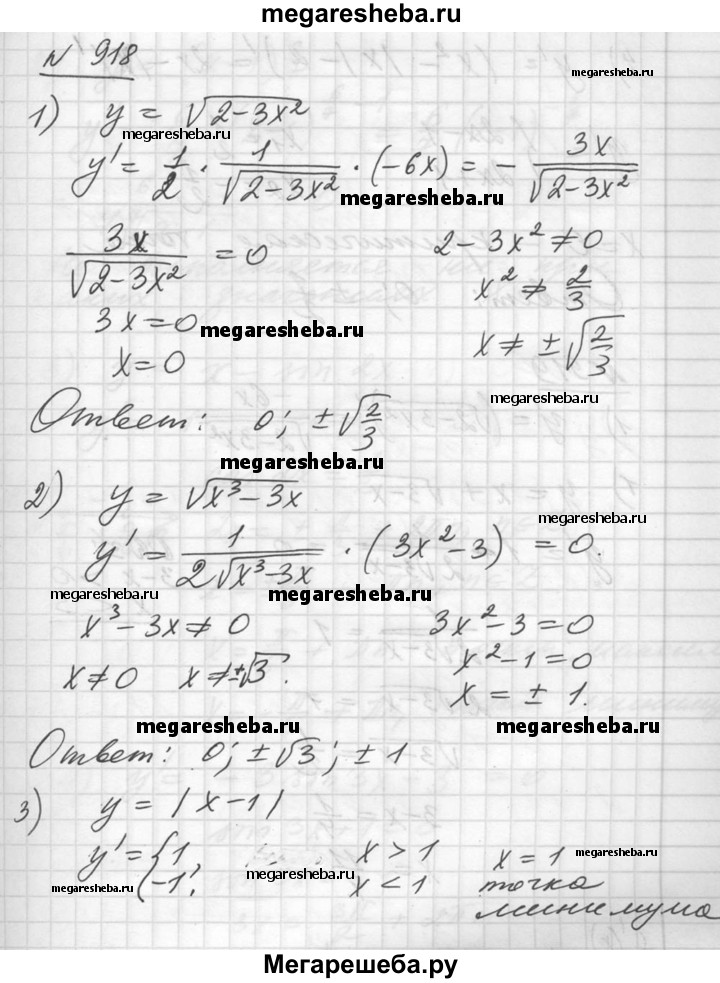 megaresheba.ru
N 918
megaresheba.ru
1) y = √(2-3x²)
megaresheba.ru
y' = 1/2 · 1/√(2-3x²) · (-6x) = - 3x/√(2-3x²)
megaresheba.ru
3x/√(2-3x²) = 0    2-3x² ≠ 0
x² ≠ 2/3
3x = 0
megaresheba.ru
x = 0    x ≠ ±√(2/3)
megaresheba.ru
Ответ: 0; ±√(2/3)
megaresheba.ru
2) y = √(x³-3x)
megaresheba.ru
y' = 1/(2√(x³-3x)) · (3x²-3) = 0.
megaresheba.ru
megaresheba.ru
x³-3x ≠ 0    3x²-3 = 0
x²-1 = 0
x ≠ 0  x ≠ ±√3.    x = ± 1.
megaresheba.ru
megaresheba.ru
Ответ: 0; ±√3; ± 1
3) y = |x-1|
y' = { 1,    x > 1    x = 1
megaresheba.ru
megaresheba.ru
{ -1,    x < 1    точка
megaresheba.ru
минимума
Мегарешеба.ру